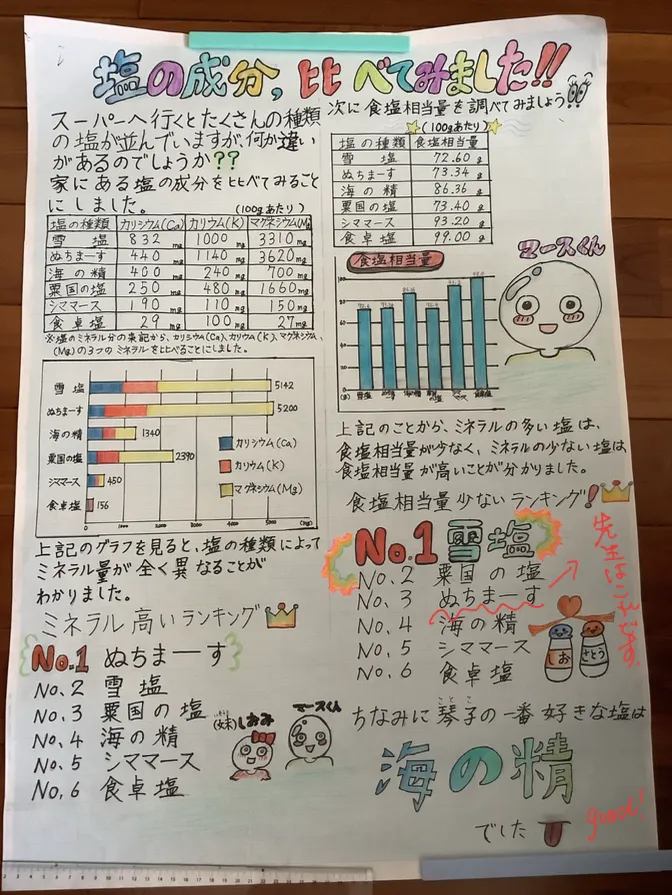 塩の成分、比べてみました!!
スーパーへ行くとたくさんの種類
の塩が並んでいますが、何か違い
があるのでしょうか??
家にある塩の成分を比べてみること
にしました。
(100gあたり)
塩の種類 カリシウム(Ca) カリウム(K) マグネシウム(Mg)
雪塩 832mg 1000mg 3310mg
ぬちまーす 440mg 1140mg 3620mg
海の精 400mg 240mg 700mg
粟国の塩 250mg 480mg 1660mg
シママース 190mg 110mg 150mg
食卓塩 29mg 100mg 27mg
※塩のミネラル分の表記から、カリシウム(Ca)、カリウム(K)、マグネシウム、
(Mg)の3つのミネラルを比べることにしました。
雪塩 5142
ぬちまーす 5200
海の精 1340
粟国の塩 2390
シママース 450
食卓塩 156
カリシウム(Ca)
カリウム(K)
マグネシウム(Mg)
0 1000 2000 3000 4000 5000 (mg)
上記のグラフを見ると、塩の種類によって
ミネラル量が全く異なることが
わかりました。
ミネラル高いランキング
No.1 ぬちまーす
No.2 雪塩
No.3 粟国の塩
No.4 海の精
No.5 シママース
No.6 食卓塩
(妹)しおみ
マースくん
次に食塩相当量を調べてみましょう
(100gあたり)
塩の種類 食塩相当量
雪塩 72.60g
ぬちまーす 73.34g
海の精 86.36g
粟国の塩 73.40g
シママース 93.20g
食卓塩 99.00g
食塩相当量
マースくん
上記のことから、ミネラルの多い塩は、
食塩相当量が少なく、ミネラルの少ない塩は
食塩相当量が高いことが分かりました。
食塩相当量少ないランキング!
No.1 雪塩
No.2 粟国の塩
No.3 ぬちまーす
No.4 海の精
No.5 シママース
No.6 食卓塩
先生はこれです。
しお
さとう
ちなみに琴子の一番好きな塩は
こと こ
海の精
でした
good!